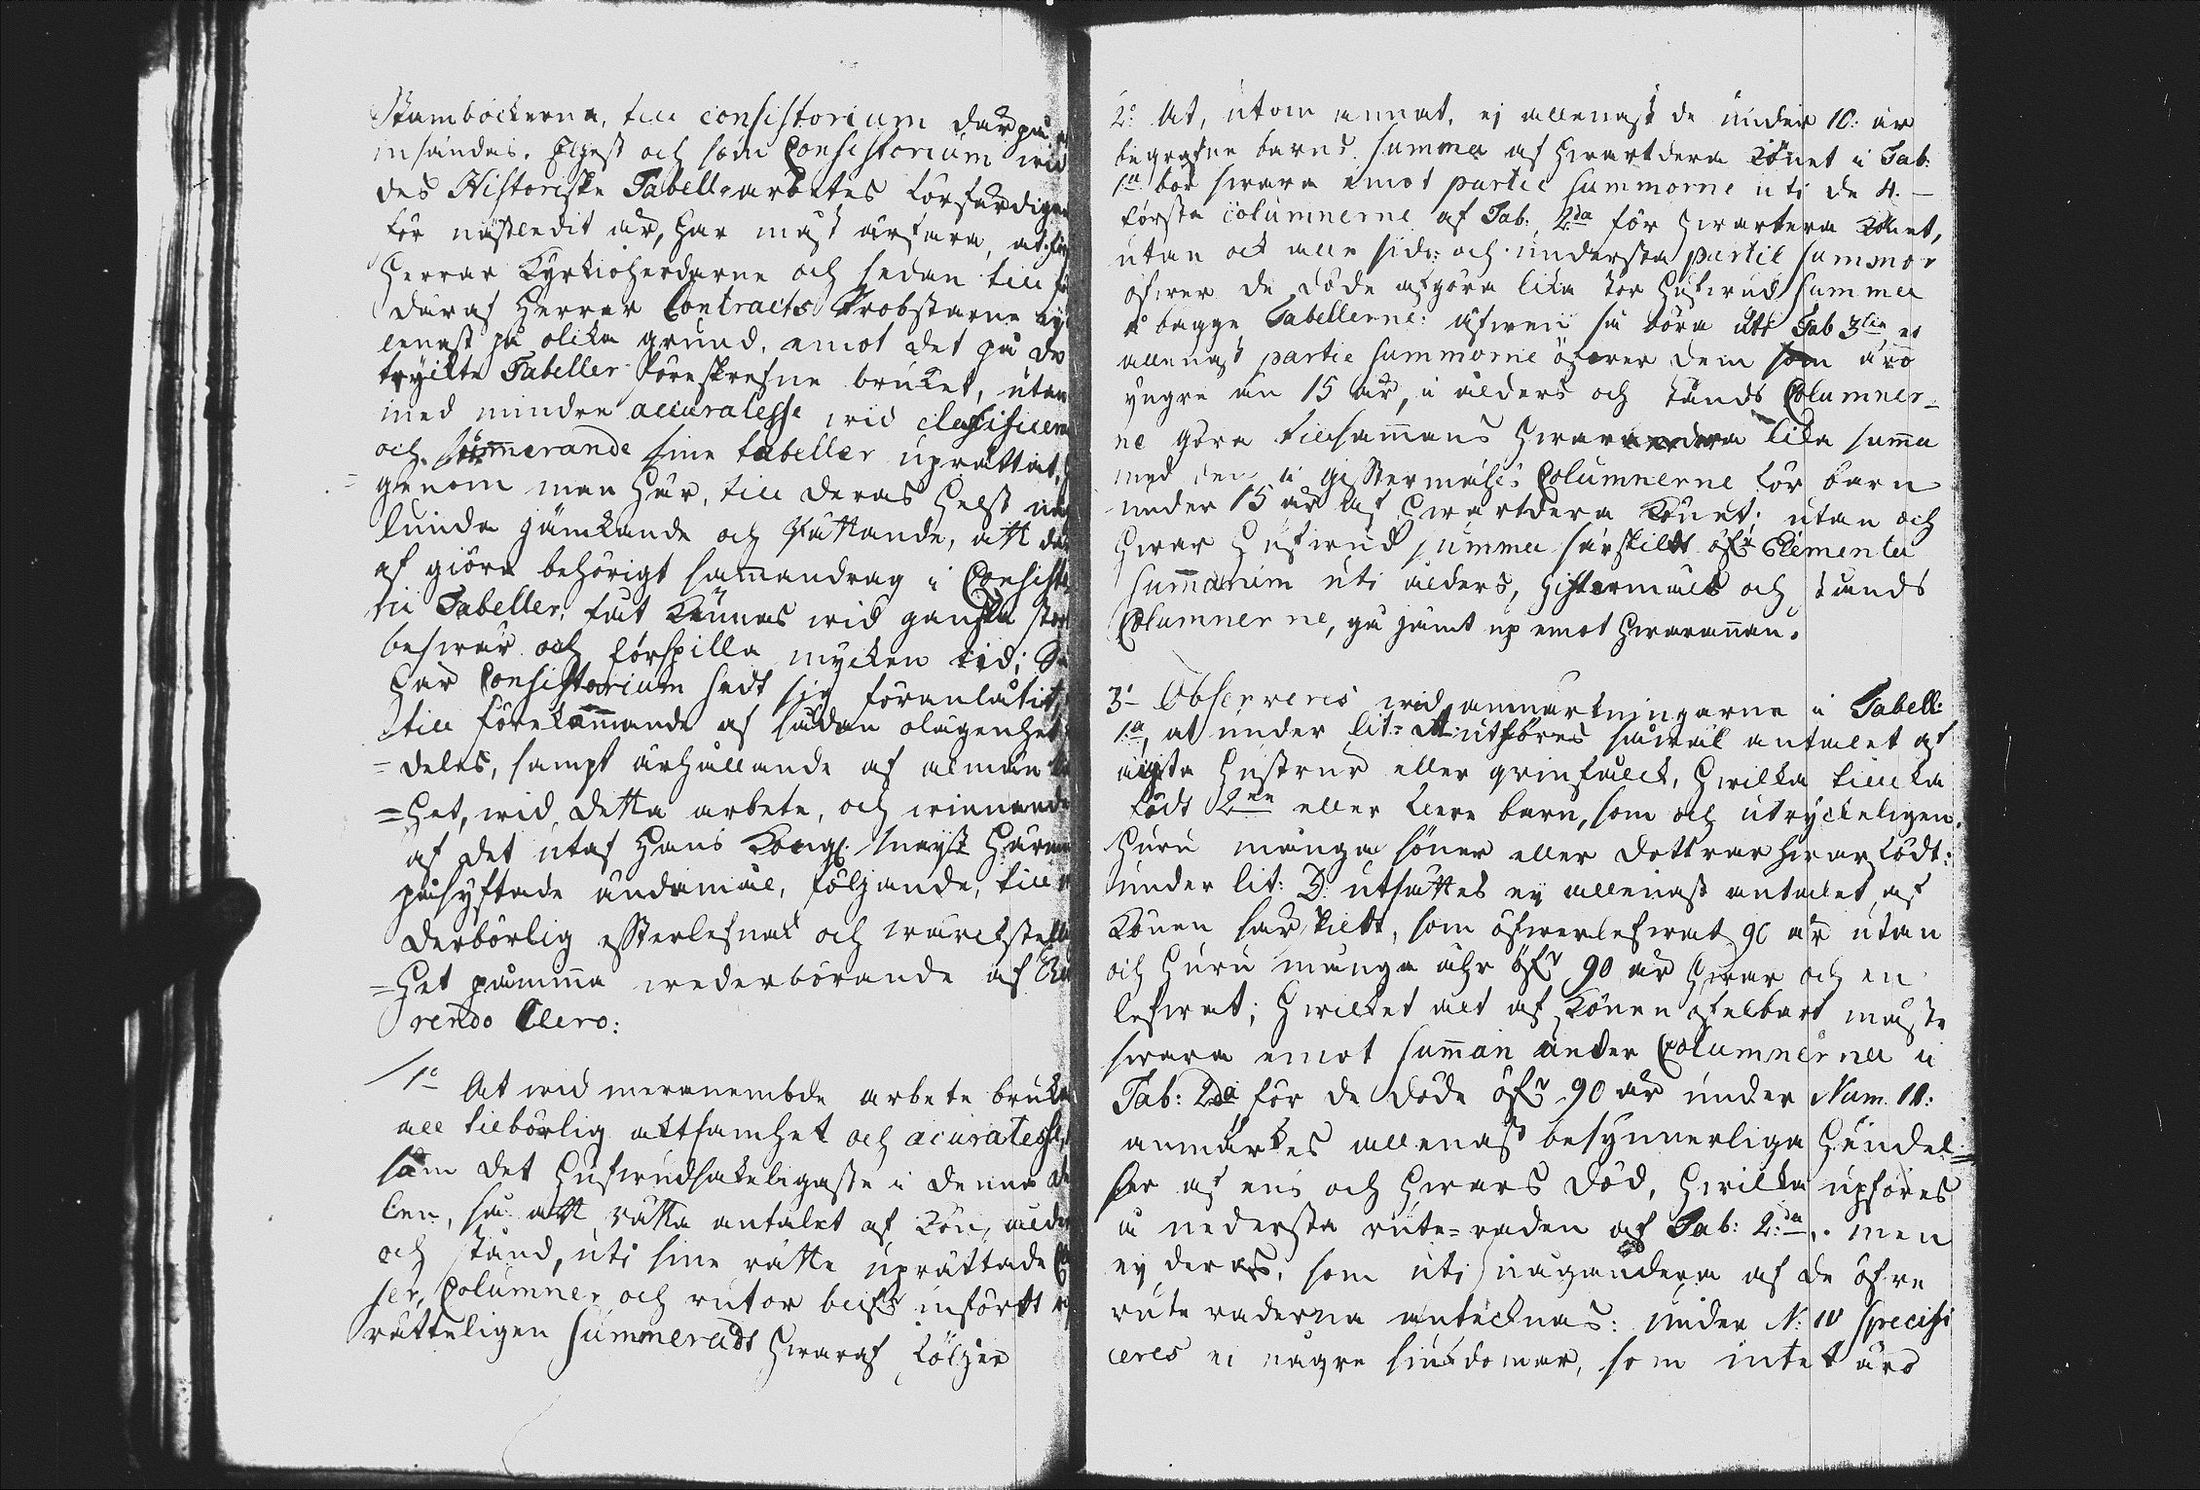 Stamböckerna, till consistorium därpå
insändes. Elljest och som Consistorium wid
des Historiske Tabell-arbetes förfärdigan
för nästledit år, har måst ärfara, at
Herrar Kyrkioherdarne och sedan till
däraf Herrar Contracts Probstarne ey
lenast på olika grund, emot det på de
tryckte Tabeller föreskrefne bruket, utan
med mindre accuratesse wid classificera
och summerande sine tabeller uprättat,
=genom man här, till deras helst
lunda jämkande och sättande, att
af giöra behörigt sammandrag i Consisto
rii Tabeller, fåt kännas wid ganska stor
beswär och förspilla mycken tid; Så
har Consistorium sedt sig föranlåtit,
till förekommande af sådan olägenhet
=deles, sampt ärhållande af almän
=het, wid detta arbete, och winnande
af det utaf Hans Kongl. Mayst härun
påsyftade ändamål, följande, till
derbörlig efterlefnad och wärckställ
=het påminna wederbörande af
rendo Clero:
1o At wid meranembde arbete bruka
all tilbörlig aktsamhet och acuratesse,
som det hufwudsakeligaste i denna
len, så att rätta antalet af kön, ålder
och stånd, uti sine rätte uprättade
ser, Columner och rutor blifr infördt
rätteligen summeradt hwaraf följer
2o At, utom annat, ej allenast de under 10: år
begrafne barns summa af hwartdera könet i Tab.
1a bör swara emot partie summorne uti de 4.
första columnerne af Tab. 2da för hwartera könet,
utan ock alla sido: och understa partie summor
öfwer de döde afgöra lika stor hufwud summa
i bägge Tabellerne: äfwen så böra uti Tab 3tia ei
allenast partie summorne öfwer dem som äro
yngre än 15 år, i ålders och stånds Columner=
ne göra tillsammans hwarandra lika summa
med den i giftermåhls Columnerne för barn
under 15 år af hwartdera könet; utan och
hwar hufwud summa särskildt öfr Elementa
summarum uti ålders, giftermåls och stånds
Columnerne, gå jämt up emot hwarannan.
3o Observeres wid anmärkningarne i Tabell:
1a, at under lit: A utföres såwäl antalet af
ägta hustrur eller qvinfolck, hwilka tillika
födt 2ne eller flere barn, som och utryckeligen.
Huru många söner eller döttrar hwar födt:
under lit: D. utsättes ey allenast antalet, af
könen särskildt, som öfwerlefwat 90 år utan
och huru många åhr öfr 90 år hwar och en
lefwat; hwilket alt af könen ofelbart måste
swara emot summan under Columnerna i
Tab: 2da för de döde öfr 90 år under Num. 10:
anmärkes allenast besynnerliga händel=
ser af ens och hwars död, hwilka upföres
i nedersta rute=raden af Tab: 2:da. men
ey deras, som uti någondera af de öfre
rute raderna antecknas: under N: 10 specifi
ceres ei någre siukdomar, som intet äro